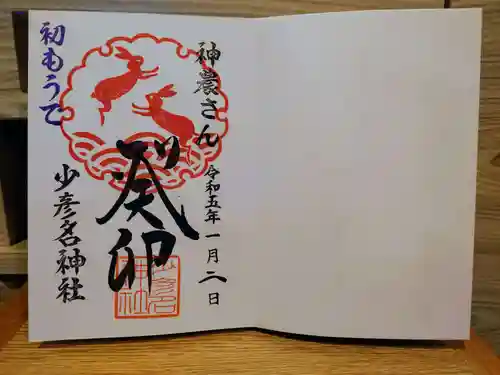 神農さん
令和五年一月二日
癸卯
初もうで
少彦名神社
少彦名
神社